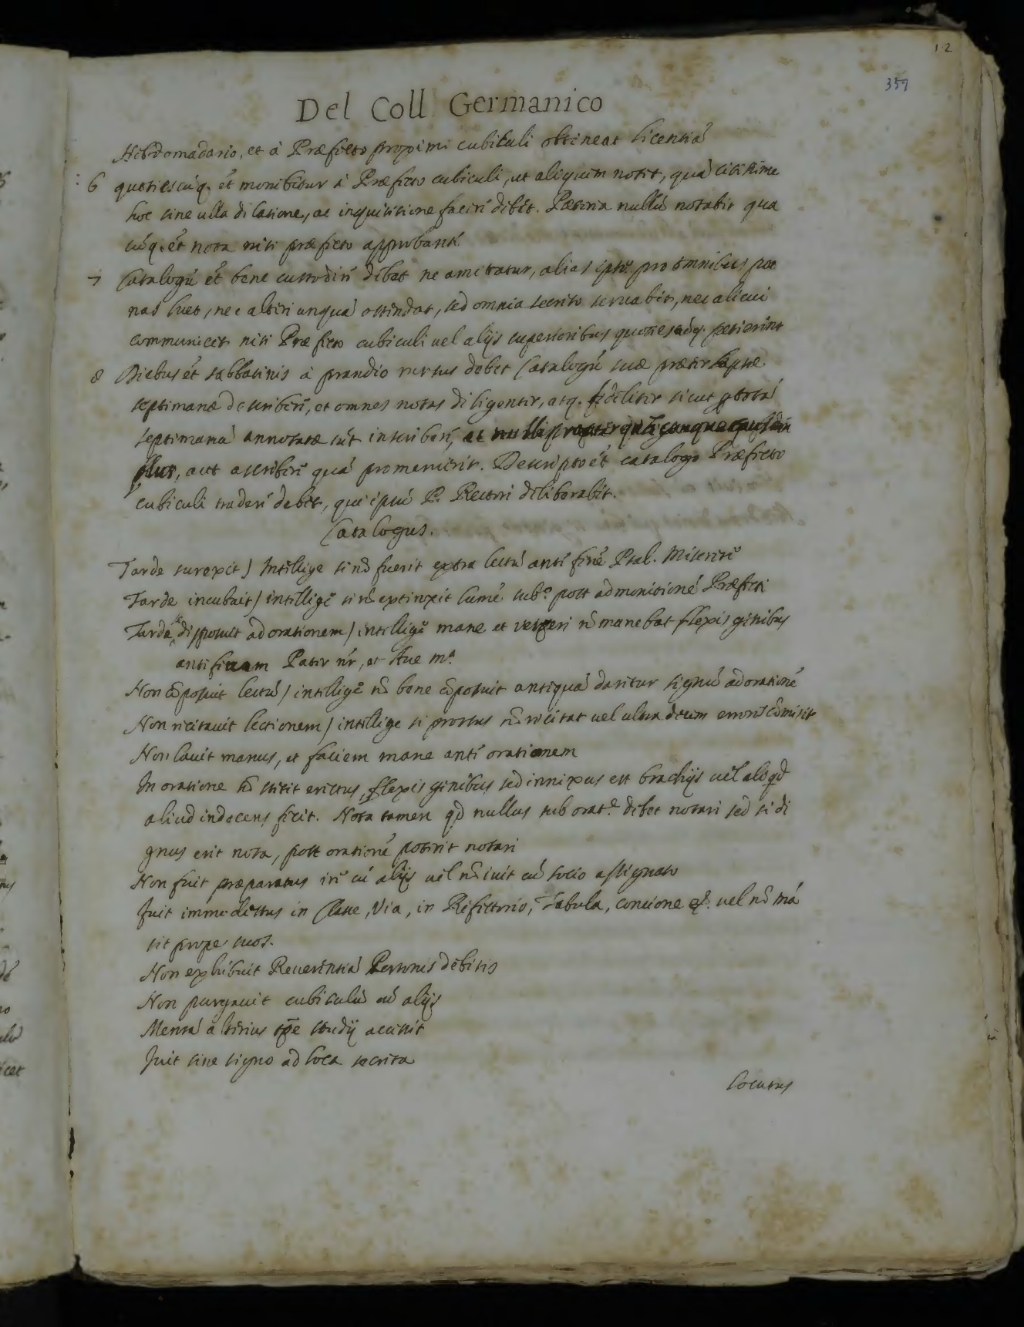 12
359
Del Coll Germanico
Hebdomadario, et à Præfecto proximi cubiculi obtineat licentiā
6 quotiescūq. et monebitur à Præfecto cubiculi, ut aliquem notet, quā citissime
hoc sine ulla dilatione, ac inquisitione facere debet. Præterea nullū notabit qua
cūq. et nota nisi præfecto approbante
7 Catalogū et bene custodire debet ne amittatur, alias ipse pro omnibus poe
nas luet, nec alteri unquā ostendat, sed omnia secreto servabit, nec alicui
communicet nisi Præfecto cubiculi vel alijs superioribus quotiescūq. petierint
8 Diebus et sabbatinis à prandio rursus debet Catalogū suæ præterlapsæ
septimanæ describere, et omnes notas diligenter, atq. fideliter sicut p totā
septimanā annotatæ sūt inscribere, ac nulli propter
plus, aut ascribere quā promeruerit. Descripto et catalogo Præfecto
cubiculi tradere debet, qui ipsū P. Rectori deliberabit.
Catalogus.
Tarde surexit / Intellige si nō fuerit extra lectū ante finē Psal. Miserere
Tarde incubuit / intellige si nō extinxit lumē sub.o post admonitionē Præfecti
Tarde disposuit ad orationem / intellige mane et vesperi nō manebat flexis genibus
ante Pater nr, et Ave m.a
Non cōposuit lectū / intellige nō bene cōposuit antequā daretur signū ad orationē
Non recitavit lectionem / intellige si prorsus nō recitat vel ultra errores cōmisit
Non lavit manus, et faciem mane ante orationem
In oratione nō stetit erectus, flexis genibus sed innixus est brachijs vel aliqd
aliud indecens fecit. Nota tamen qd nullus sub orat.e debet notari sed si di
gnus erit nota, post orationē poterit notari
Non fuit præparatus ire cū alijs vel nō ivit cū socio assignato
Fuit immodestus in Classe, Via, in Refectorio, Tabula, concione vel nō mā
sit prope suos.
Non exhibuit Reverentiā Personis debitis
Non purgavit cubiculū cū alijs
Mensā alterius tpe studij accessit
Ivit sine signo ad loca secreta
Locutus